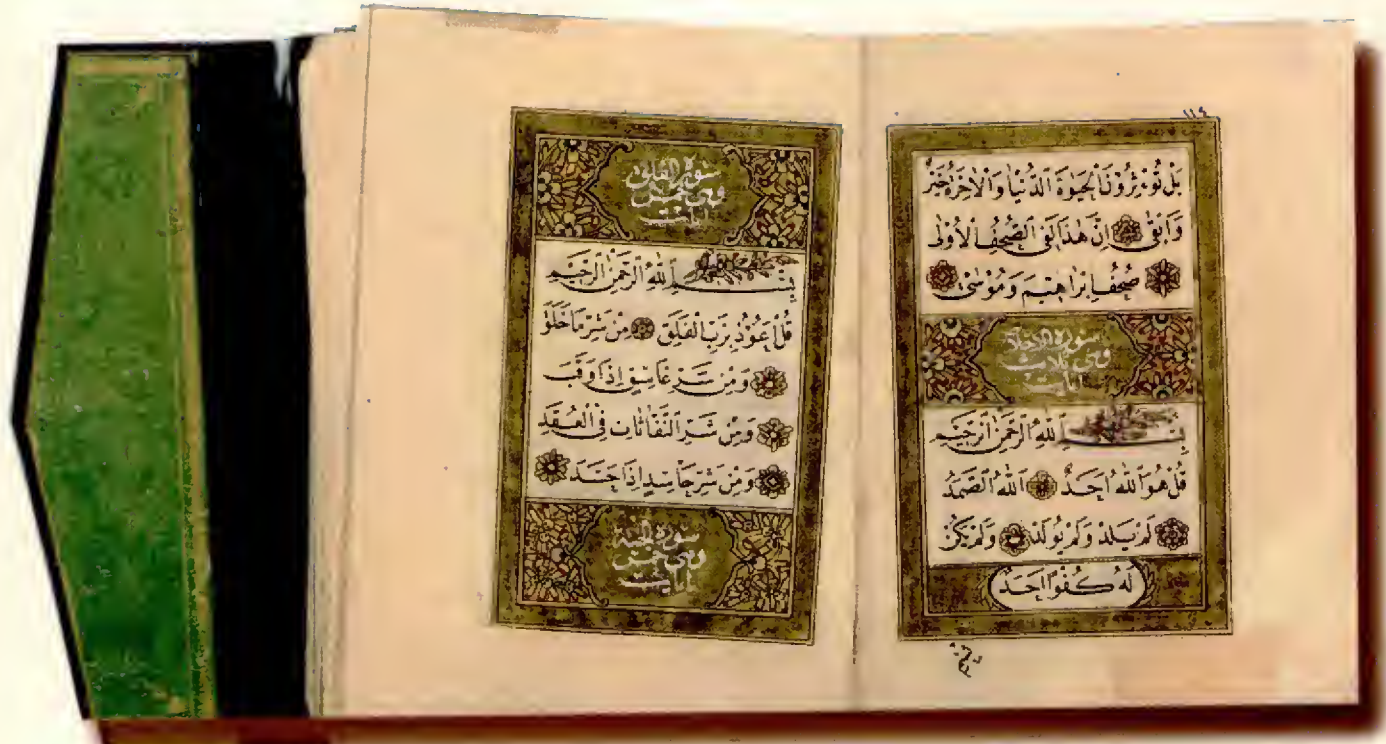 بَلْ تُؤْثِرُونَ الْحَيٰوةَ الدُّنْيَا وَالْاٰخِرَةُ خَيْرٌ
وَاَبْقٰى اِنَّ هٰذَا لَفِى الصُّحُفِ الْاُولٰى
صُحُفِ اِبْرٰهٖيمَ وَمُوسٰى
سورة
وهى ثلاث
ايات
بِسْمِ اللّٰهِ الرَّحْمٰنِ الرَّحٖيمِ
قُلْ هُوَ اللّٰهُ اَحَدٌ اَللّٰهُ الصَّمَدُ
لَمْ يَلِدْ وَلَمْ يُولَدْ وَلَمْ يَكُنْ
لَهُ كُفُوًا اَحَدٌ
سورة الفلق
وهى خمس
ايات
بِسْمِ اللّٰهِ الرَّحْمٰنِ الرَّحٖيمِ
قُلْ اَعُوذُ بِرَبِّ الْفَلَقِ مِنْ شَرِّ مَا خَلَقَ
وَمِنْ شَرِّ غَاسِقٍ اِذَا وَقَبَ
وَمِنْ شَرِّ النَّفَّاثَاتِ فِى الْعُقَدِ
وَمِنْ شَرِّ حَاسِدٍ اِذَا حَسَدَ
سورة
وهى خمس
ايات